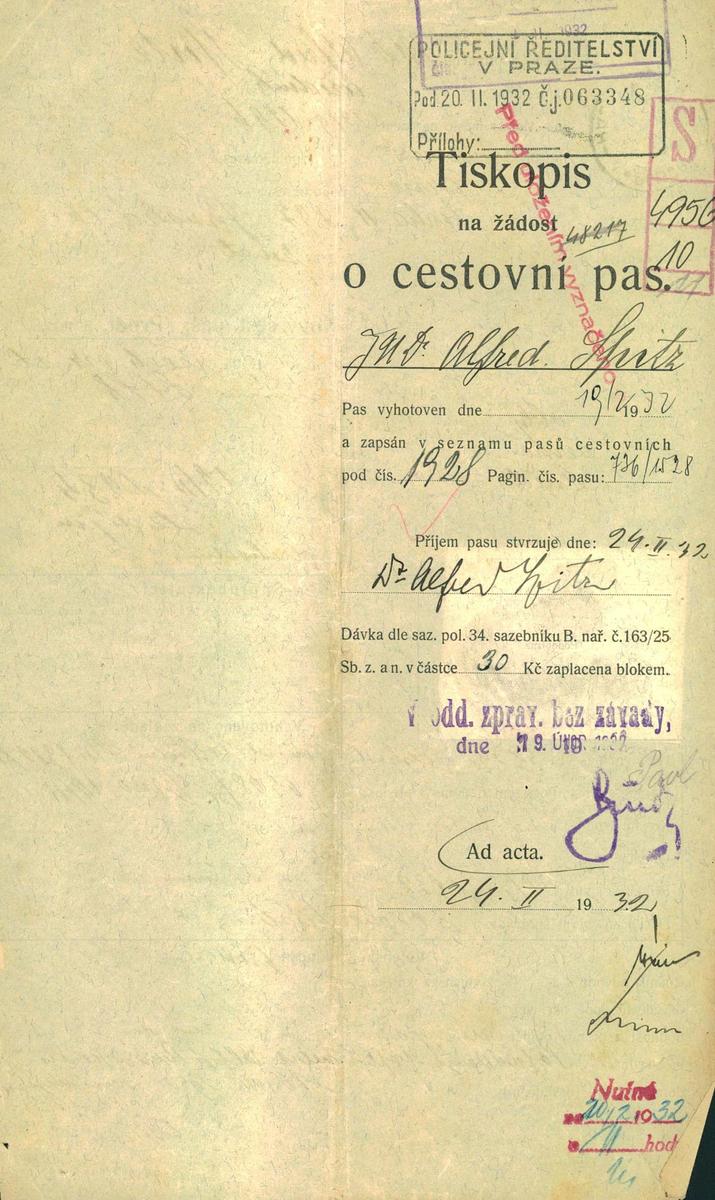 1932
POLICEJNÍ ŘEDITELSTVÍ
V PRAZE.
Pod. 20. II. 1932 Č.j. 063348
Přílohy:
S
4956
10
Tiskopis
na žádost 48217
o cestovní pas.
Před vyznačeno
JUDr. Alfred Spitz
Pas vyhotoven dne 19/2 1932
a zapsán v seznamu pasů cestovních
pod čís. 1928 Pagin. čís. pasu: 736/1528
Příjem pasu stvrzuje dne: 24. II. 32
Dr Alfred Spitz
Dávka dle saz. pol. 34. sazebníku B. nař. č. 163/25
Sb. z. a n. v částce 30 Kč zaplacena blokem.
V odd. zprav. bez závady,
dne 19. ÚNOR 1932
Ad acta.
24. II 1932
Nutné
20/2 1932
11 hod